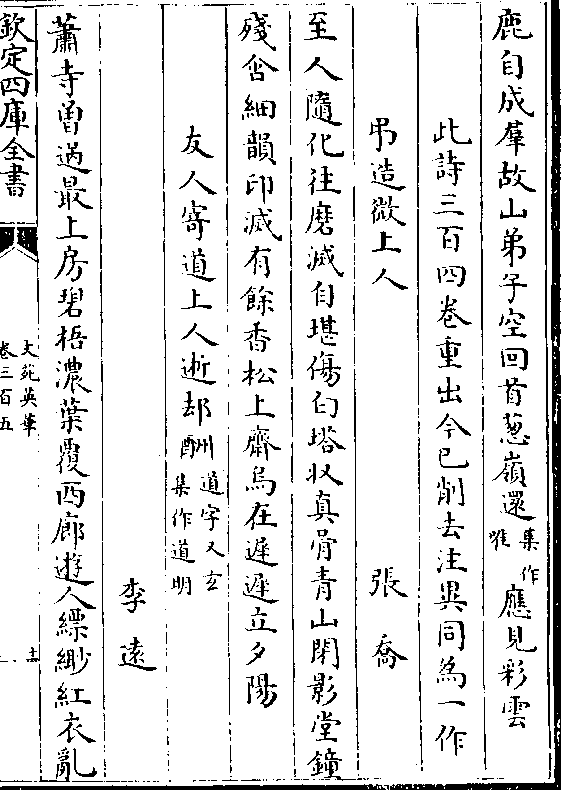 鹿自成羣故山弟子空回首葱嶺還集作唯應見彩雲
此詩三百四卷重出今已削去注異同為一作
弔造微上人
張喬
至人隨化往磨滅自堪傷白塔収真骨青山閉影堂鐘
殘含細韻印滅有餘香松上齋烏在遲遲立夕陽
友人寄道上人逝却酬道字又玄集作道明
李遠
蕭寺曽過最上房碧梧濃葉覆西廊遊人縹緲紅衣亂
欽定四庫全書
文苑英華
卷三百五
十二